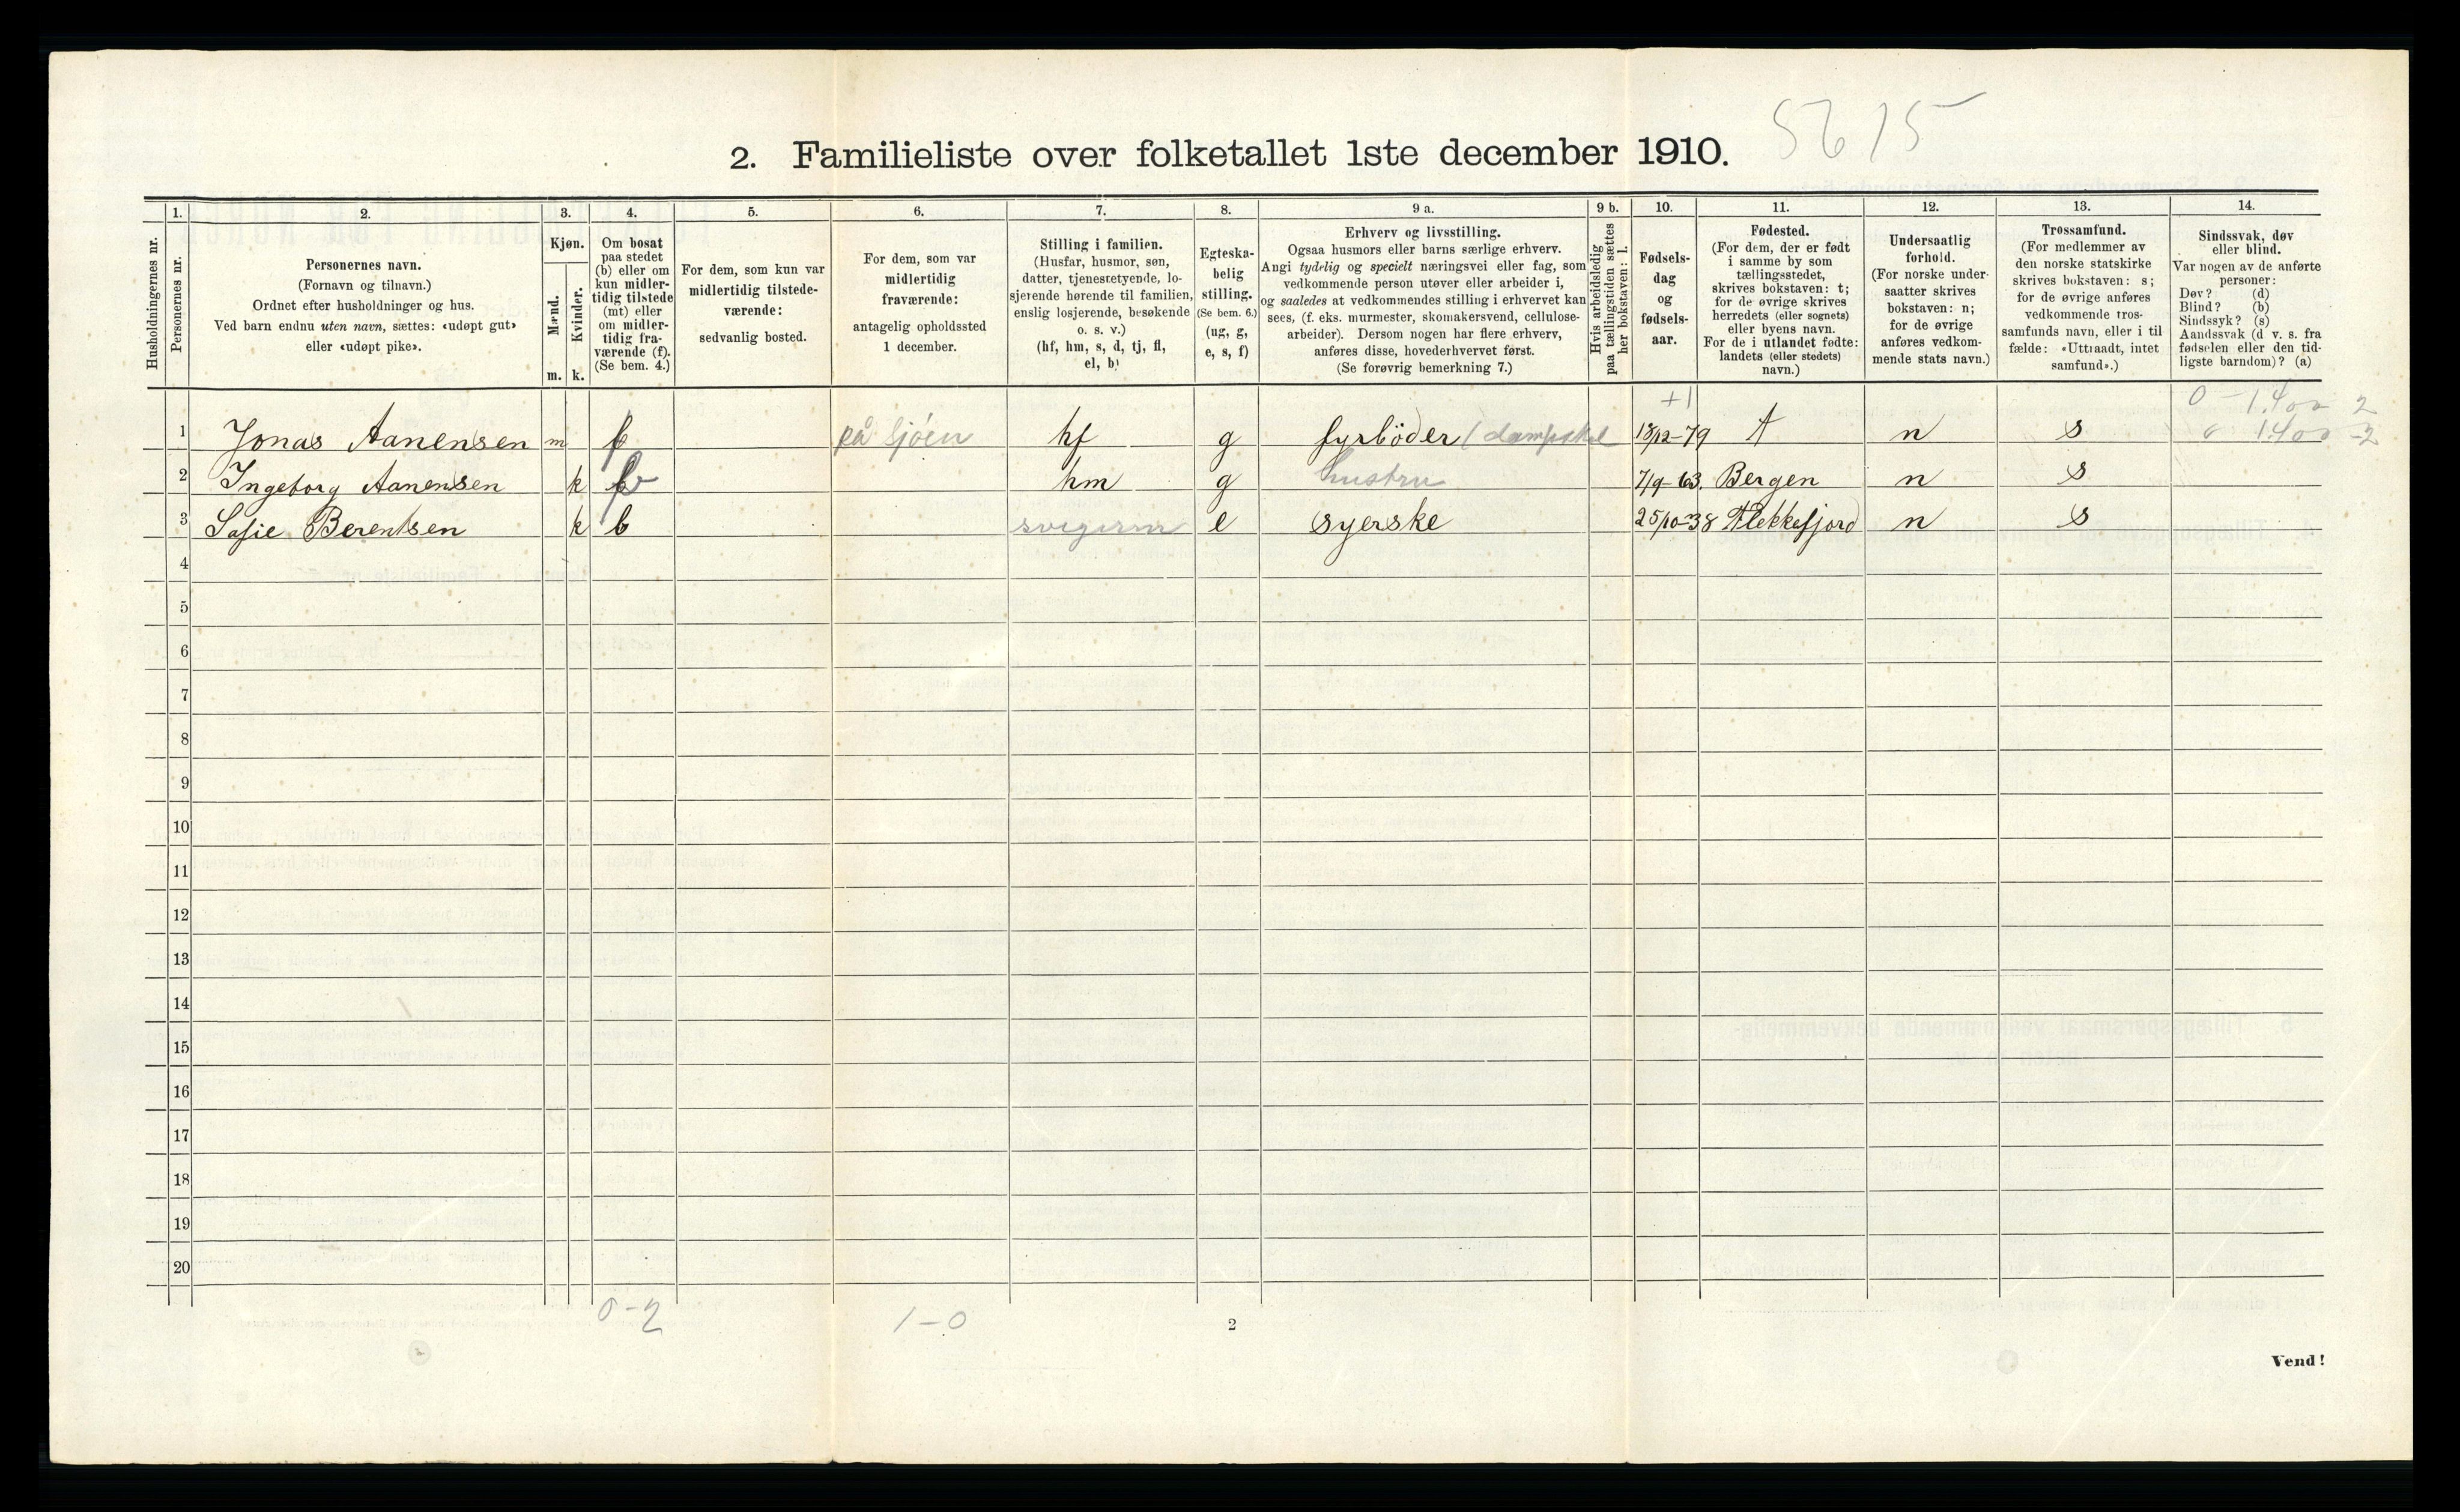 5615
2. Familieliste over folketallet 1ste december 1910.
1. 2. 3. 4. 5. 6. 7. 8. 9 a. 9 b. 10. 11. 12. 13. 14.
Husholdningernes nr.
Personernes nr.
Personernes navn.
(Fornavn og tilnavn.)
Ordnet efter husholdninger og hus.
Ved barn endnu uten navn, sættes: «udøpt gut»
eller «udøpt pike».
Kjøn.
Mænd.
Kvinder.
m. k.
Om bosat
paa stedet
(b) eller om
kun midler-
tidig tilstede
(mt) eller
om midler-
tidig fra-
værende (f).
(Se bem. 4.)
For dem, som kun var
midlertidig tilstede-
værende:
sedvanlig bosted.
For dem, som var
midlertidig
fraværende:
antagelig opholdssted
1 december.
Stilling i familien.
(Husfar, husmor, søn,
datter, tjenestetyende, lo-
sjerende hørende til familien,
enslig losjerende, besøkende
o. s. v.)
(hf, hm, s, d, tj, fl,
el, b)
Egteska-
belig
stilling.
(Se bem. 6.)
(ug, g,
e, s, f)
Erhverv og livsstilling.
Ogsaa husmors eller barns særlige erhverv.
Angi tydelig og specielt næringsvei eller fag, som
vedkommende person utøver eller arbeider i,
og saaledes at vedkommendes stilling i erhvervet kan
sees, (f. eks. murmester, skomakersvend, cellulose-
arbeider). Dersom nogen har flere erhverv,
anføres disse, hovederhvervet først.
(Se forøvrig bemerkning 7.)
Hvis arbeidsledig
paa tællingstiden sættes
her bokstaven: l.
Fødsels-
dag
og
fødsels-
aar.
Fødested.
(For dem, der er født
i samme by som
tællingsstedet,
skrives bokstaven: t;
for de øvrige skrives
herredets (eller sognets)
eller byens navn.
For de i utlandet fødte:
landets (eller stedets)
navn.)
Undersaatlig
forhold.
(For norske under-
saatter skrives
bokstaven: n;
for de øvrige
anføres vedkom-
mende stats navn.)
Trossamfund.
(For medlemmer av
den norske statskirke
skrives bokstaven: s;
for de øvrige anføres
vedkommende tros-
samfunds navn, eller i til
fælde: «Uttraadt, intet
samfund».)
Sindssvak, døv
eller blind.
Var nogen av de anførte
personer:
Døv? (d)
Blind? (b)
Sindssyk? (s)
Aandssvak (d v. s. fra
fødselen eller den tid-
ligste barndom)? (a)
+1 0 - 1.400 2
1 Jonas Aanensen m f på sjöen hf g fyrböder (dampskel 18/12-79 t n s 0 1.400 -2
2 Ingeborg Aanensen k b hm g hustru 7/9-63. Bergen n s
3 Sofie Berentsen k b svigerm e syerske 25/10-38 Flekkefjord n s
4
5
6
7
8
9
10
11
12
13
14
15
16
17
18
19
20
0-2 1-0
2
Vend!